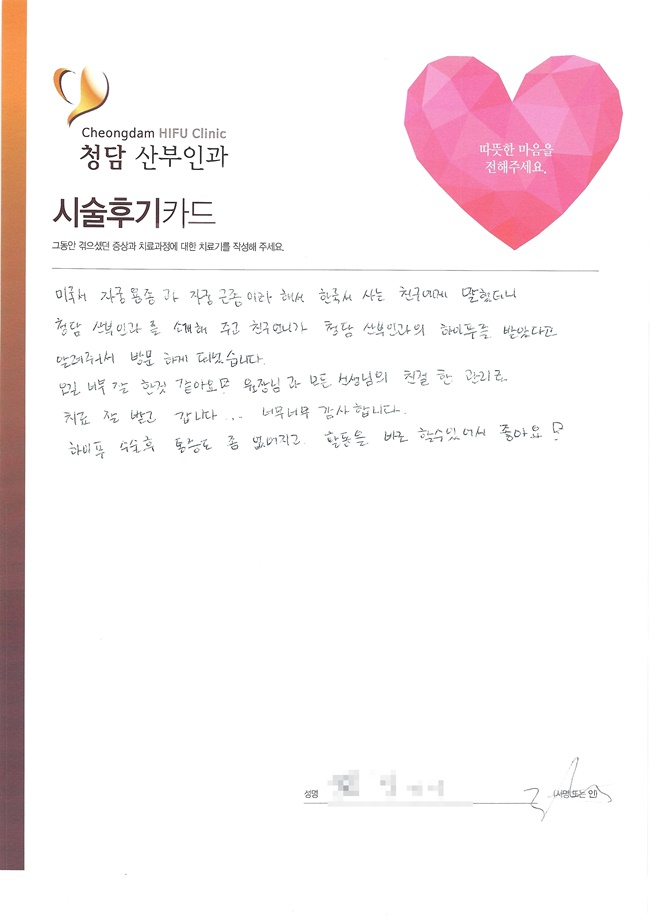 Cheongdam HIFU Clinic
청담 산부인과
따뜻한 마음을
전해주세요.
시술후기카드
그동안 겪으셨던 증상과 치료과정에 대한 치료기를 작성해 주세요.
미국서 자궁용종과 자궁근종이라 해서 한국서 사는 친구에게 말했더니
청담 산부인과를 소개해 주고 친구언니가 청담 산부인과의 하이푸를 받았다고
알려주어서 방문 하게 되었습니다.
너무 잘 한것 같아요! 원장님과 모든 선생님의 친절 한 관리로
치료 잘 받고 갑니다... 너무너무 감사합니다.
하이푸 수술후 통증도 좀 없어지고. 활동을 바로 할수있어서 좋아요!
성명
(서명 또는 인)